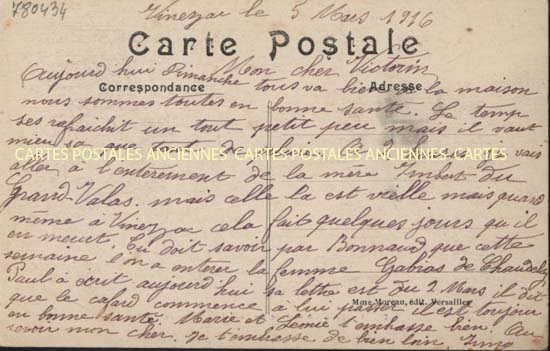 780434
Vinezac le 5 Mars 1916
Carte Postale
Mon cher Victorin
Correspondance
Adresse
Aujourd'hui Dimanche tous va bien à la maison
nous sommes toutes en bonne santé. Le temp
ses rafraichit un tout petit peu mais il vaut
mieu
CARTES POSTALES ANCIENNES CARTES POSTALES ANCIENNES CARTES
vais
aller à l'enterement de la mère Imbert du
Grand Valas. mais celle la est vielle mais quand
même à Vinezac cela fait quelques jours qu'il
en meurt. Tu doit savoir par Bonnaud que cette
semaine l'on a enterer la femme Gabias de Chaudelay
Paul à écrit aujourd'hui sa lettre est du 2 Mars il dit
que le cafard commence à lui passer il est toujour
Mme Moreau, édit. Versailles
en bonne santé Marie et Léonie t'embrasse bien. Au
revoir mon cher. Je t'embrasse de bien loin.